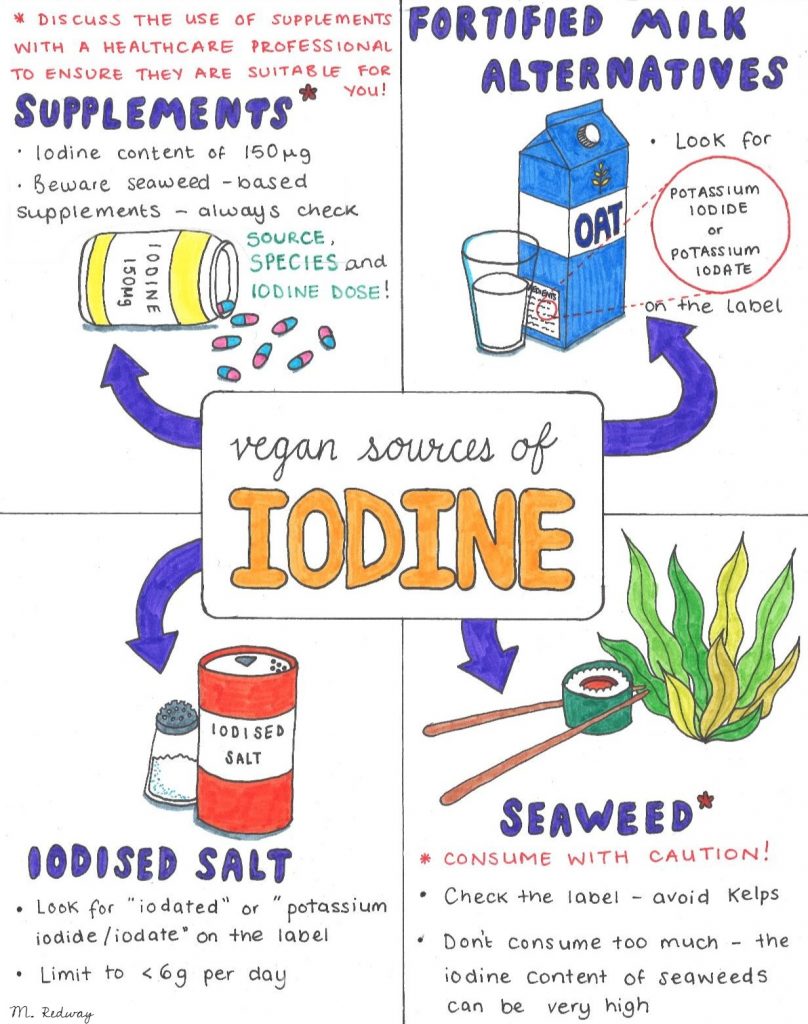 * DISCUSS THE USE OF SUPPLEMENTS
WITH A HEALTHCARE PROFESSIONAL
TO ENSURE THEY ARE SUITABLE FOR
YOU!
SUPPLEMENTS*
• Iodine content of 150µg
• Beware seaweed-based
supplements - always check
SOURCE,
SPECIES and
IODINE DOSE!
IODINE
150µg
FORTIFIED MILK
ALTERNATIVES
• Look for
POTASSIUM
IODIDE
or
POTASSIUM
IODATE
on the label
OAT
vegan sources of
IODINE
IODISED
SALT
IODISED SALT
• Look for "iodated" or "potassium
iodide/iodate" on the label
• Limit to <6g per day
M. Redway
SEAWEED*
* CONSUME WITH CAUTION!
• Check the label - avoid Kelps
• Don't consume too much - the
iodine content of seaweeds
can be very high